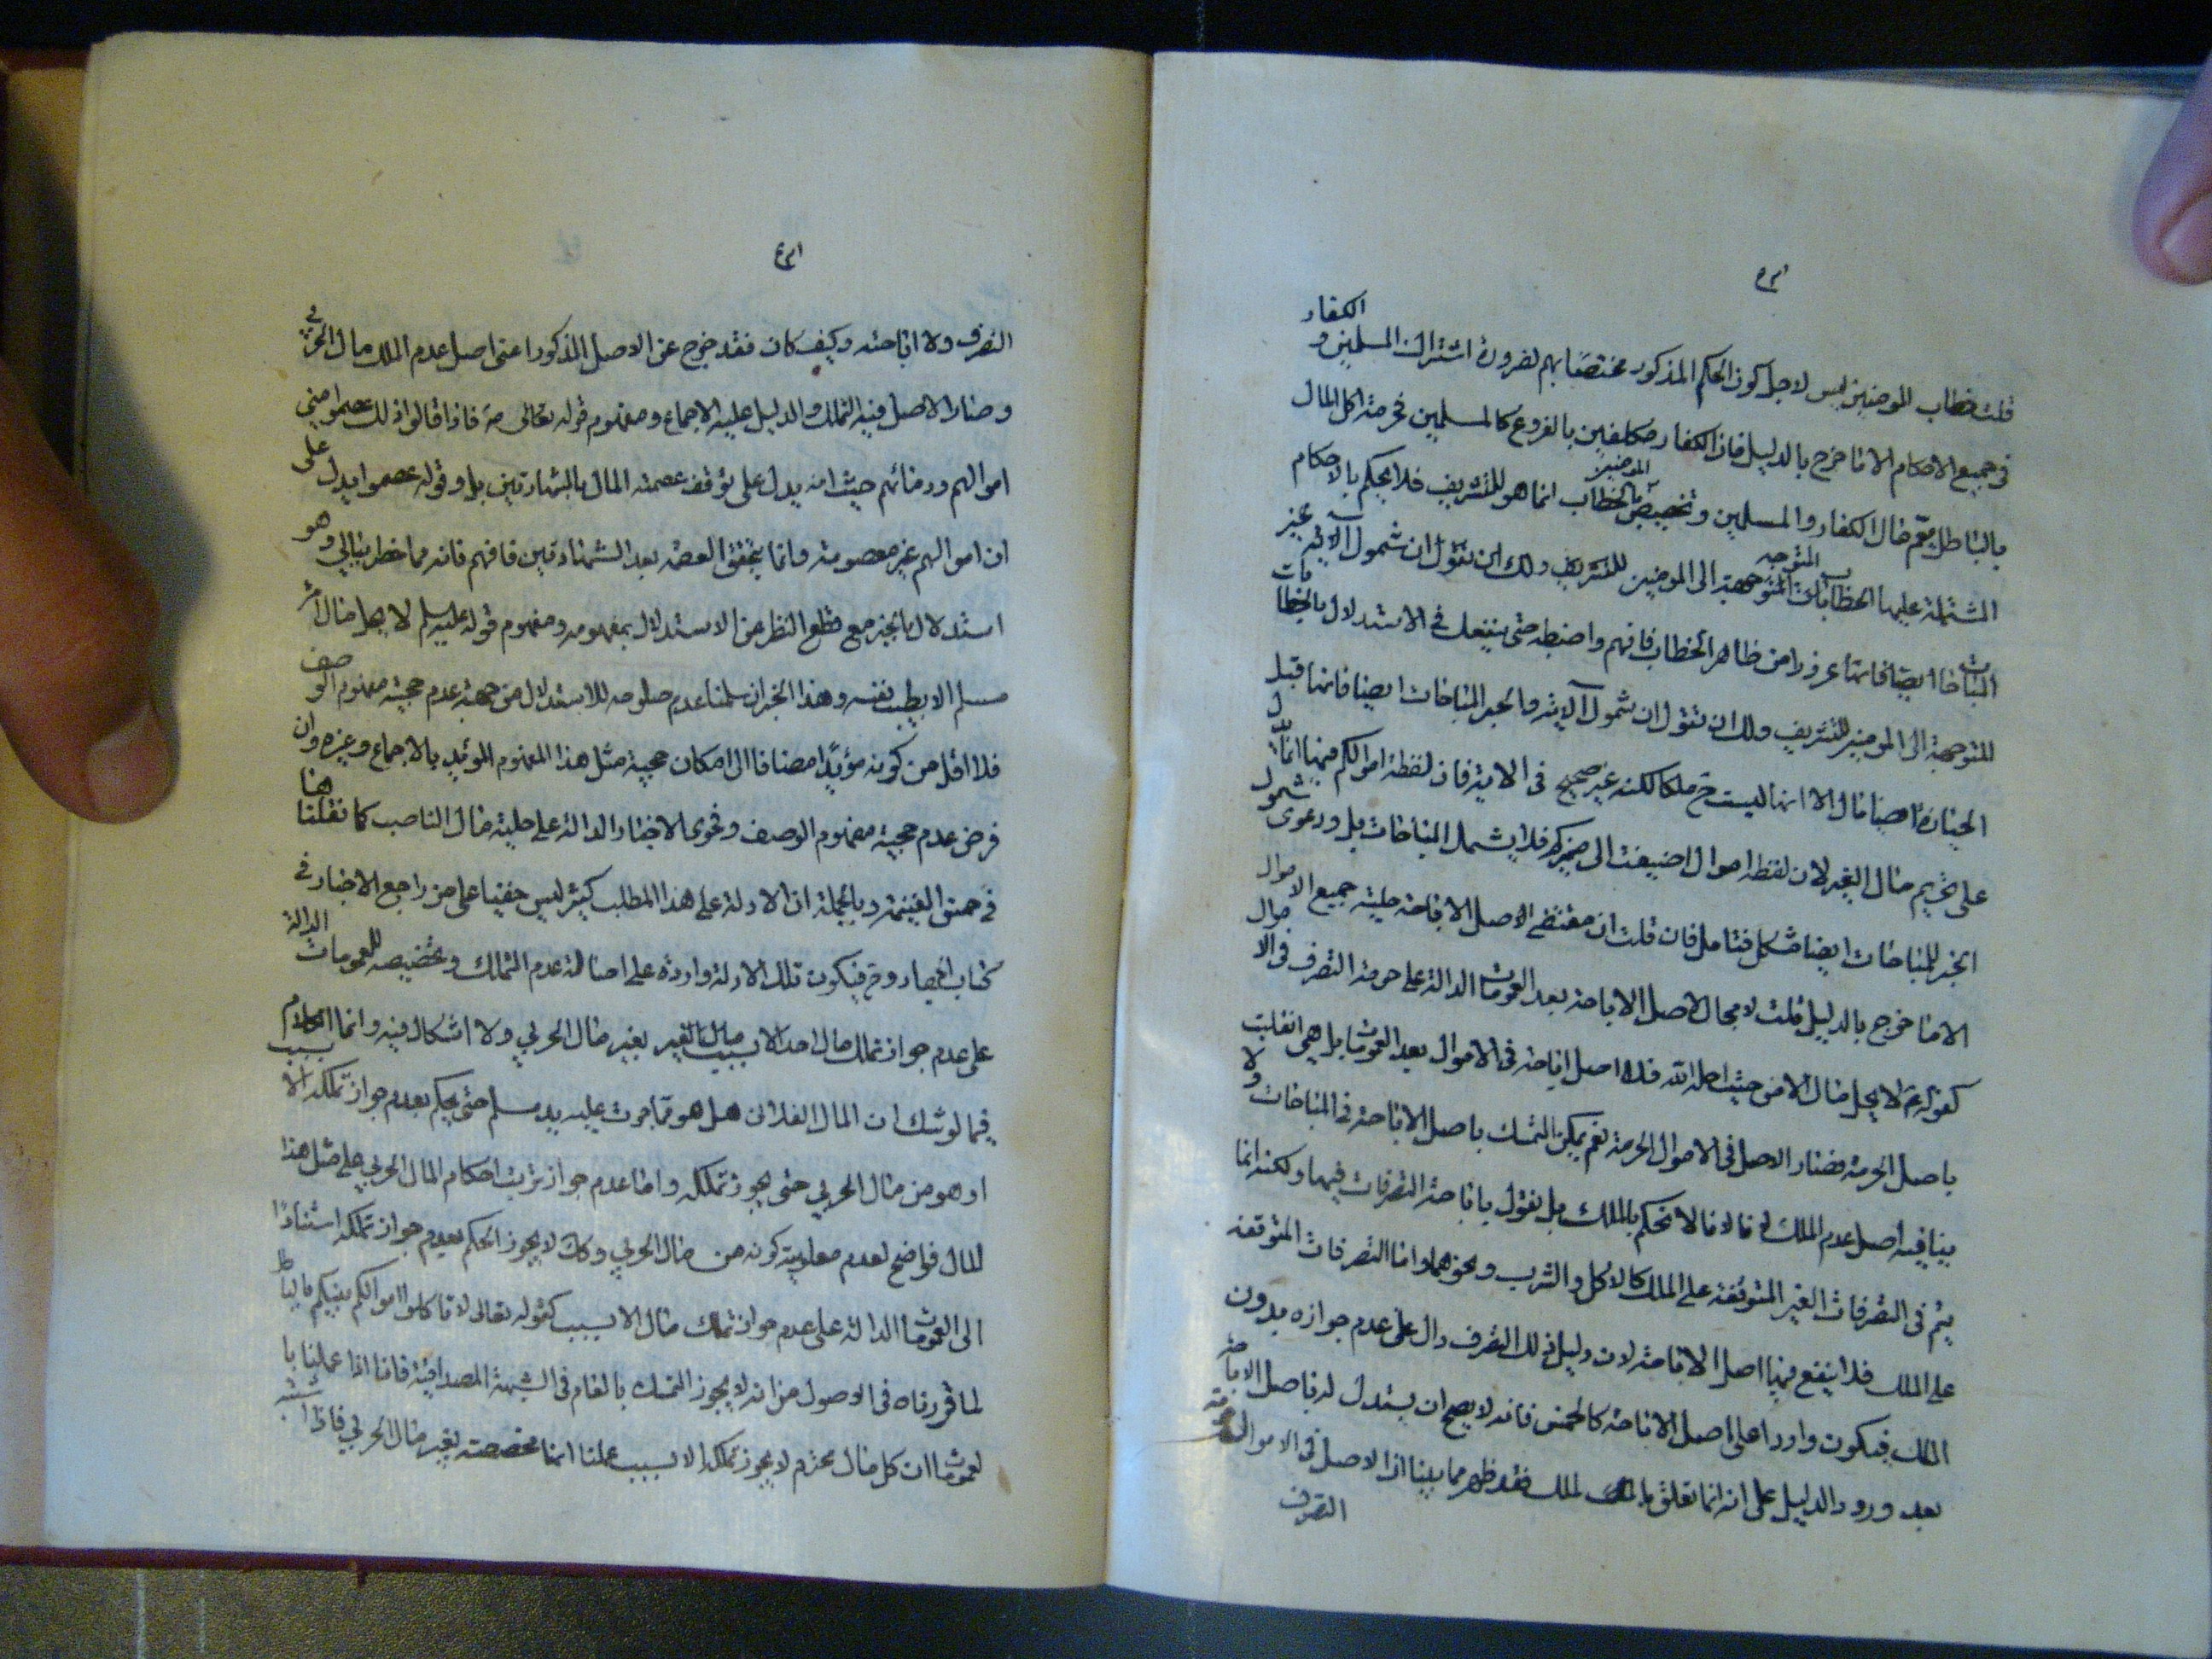 قلت خطاب المومنين ليس لاجل كون الحكم المذكور مختصا بهم لضرورة اشتراك المسلمين و الكفار
فى جميع الاحكام الا ما خرج بالدليل فان الكفار مكلفين بالفروع كالمسلمين فحرمة اكل المال
بالباطل يعم حال الكفار والمسلمين وتخصيص المومنين بالخطاب انما هو للتشريف فلا يحكم بالاحكام
المشتملة عليها الخطابات المتوجهة الى المومنين للتشريف ولك ان تقول ان شمول الآية غير
المباحات ايضا فانها عرفا من ظاهر الخطاب فافهم واضبطه حتى ينفعك فى الاستدلال بالخطابات
المتوجهة الى المومنين للتشريف ولك ان تقول ان شمول الآية والخبر المباحات ايضا فانها قبل
الحيازة ايضا مال الا انها ليست ح ملكا لكنه غير صحيح فى الاية فان لفظة اموالكم فيها انما تدل
على تحريم مال الغير لان لفظة اموال اضيفت الى ضمير كم فلا يشمل المباحات بل ودعوى شمول
الخبر للمباحات ايضا مشكل فتامل فان قلت ان مقتضى الاصل الاباحة حلية جميع الاموال
الا ما خرج بالدليل قلت لا مجال لاصل الاباحة بعد العمومات الدالة على حرمة التصرف فى الاموال
كقوله ع لا يحل مال الا من حيث احله الله فلا اصل اباحة فى الاموال بعد العمومات بل هى انقلبت
باصل الحرمة فصار الاصل فى الاموال الحرمة نعم يمكن التمسك باصل الاباحة فى المباحات ولا
ينافيه اصل عدم الملك لانا لا نحكم بالملك بل نقول باباحة التصرفات فيها ولكنه انما
يتم فى التصرفات الغير المتوقفة على الملك كالاكل والشرب ونحوهما واما التصرفات المتوقفة
على الملك فلا ينفع فيها اصل الاباحة لان دليل ذلك التصرف دال على عدم جوازه بدون
الملك فيكون واردا على اصل الاباحة كالخمس فانه لا يصح ان يستدل له باصل الاباحة
بعد ورود الدليل على انه انما تعلق بالملك فقد ظهر مما بينا ان الاصل فى الاموال حرمة
التصرف
التصرف ولا اباحته وكيف كان فقد خرج عن الاصل المذكور اعنى اصل عدم الملك مال الحربي
وصار الاصل فيه التملك والدليل عليه الاجماع ومفهوم قوله تعالى فاذا قالوا ذلك عصموا منى
اموالهم ودمائهم حيث انه يدل على توقف عصمة المال بالشهادتين بل وقوله عصموا يدل على
ان اموالهم غير معصومة وانما يتحقق العصمة بعد الشهادتين فافهم فانه مما خطر ببالي وهو
استدلال بالخبر مع قطع النظر عن الاستدلال بمفهومه ومفهوم قوله عليه السلم لا يحل مال امرء
مسلم الا بطيب نفسه وهذا الخبر ان سلمنا عدم صلوحه للاستدلال من جهة عدم حجية مفهوم الوصف
فلا اقل من كونه مؤيدا مضافا الى امكان حجية مثل هذا المفهوم المؤيد بالاجماع وغيره وان
فرض عدم حجية مفهوم الوصف وفحوى الاخبار الدالة على حلية مال الناصب كما نقلنا هنا
فى خمس الغنيمة وبالجملة ان الادلة على هذا المطلب كثير ليس خفيا على من راجع الاخبار فى
كتاب الجهاد وح فيكون تلك الادلة واردة على اصالة عدم التملك وتخصيصه للعمومات الدالة
على عدم جواز تملك مال احد الا بسبب مال الغير بغير مال الحربي ولا اشكال فيه وانما الكلام
فيما لو شك ان المال الفلانى هل هو مما جرت عليه يد مسلم حتى يحكم بعدم جواز تملكه الا بسبب
او هو من مال الحربي حتى يجوز تملكه واما عدم جواز ترتيب احكام المال الحربي على مثل هذا
المال فواضح لعدم معلومية كونه من مال الحربي وكك لا يجوز الحكم بعدم جواز تملكه استنادا
الى العمومات الدالة على عدم جواز تملك مال الا بسبب كقوله تعالى لا تاكلوا اموالكم بينكم بالباطل
لما قررناه فى الاصول من انه لا يجوز التمسك بالعام فى الشبهة المصداقية فانا اذا علمنا با
لعمومات ان كل مال محترم لا يجوز تملكه الا بسبب علمنا انها مخصصة بغير مال الحربي فاذا اشتبه